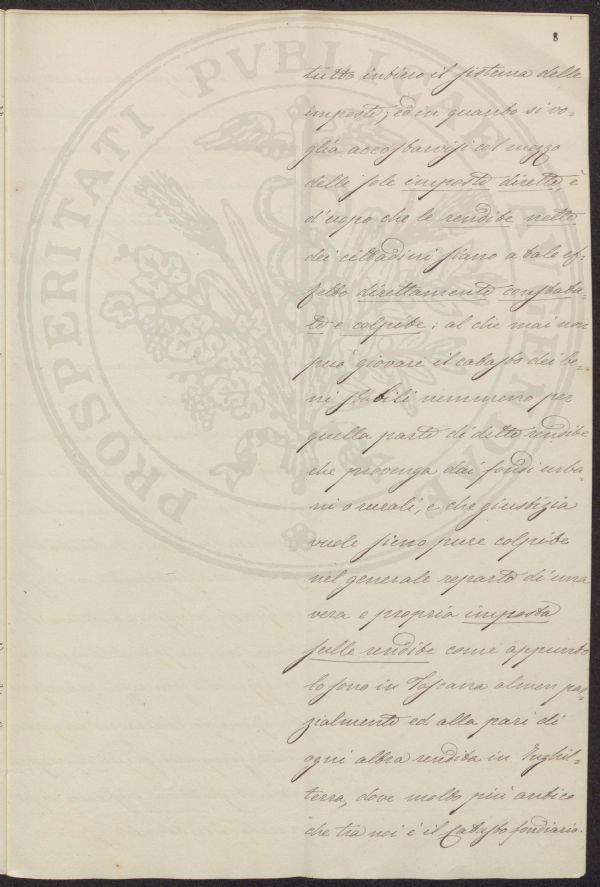 8
tutto intiero il sistema delle
imposte; ed in quanto si vo-
glia accostarvisi col mezzo
delle sole imposte dirette è
d'uopo che le rendite nette
dei cittadini siano a tale ef-
fetto direttamente constata-
te e colpite; al che mai non
può giovare il catasto dei be-
ni stabili nemmeno per
quella parte di dette rendite
che provenga dai fondi urba-
ni o rurali, e che giustizia
vuole sieno pure colpite
nel generale reparto di una
vera e propria imposta
sulle rendite come appunto
lo sono in Toscana almen par-
zialmente ed alla pari di
ogni altra rendita in Inghil-
terra, dove molto più antico
che tra noi è il Catasto fondiario.
PROSPERITATI PVBLICAE AVGENDAE